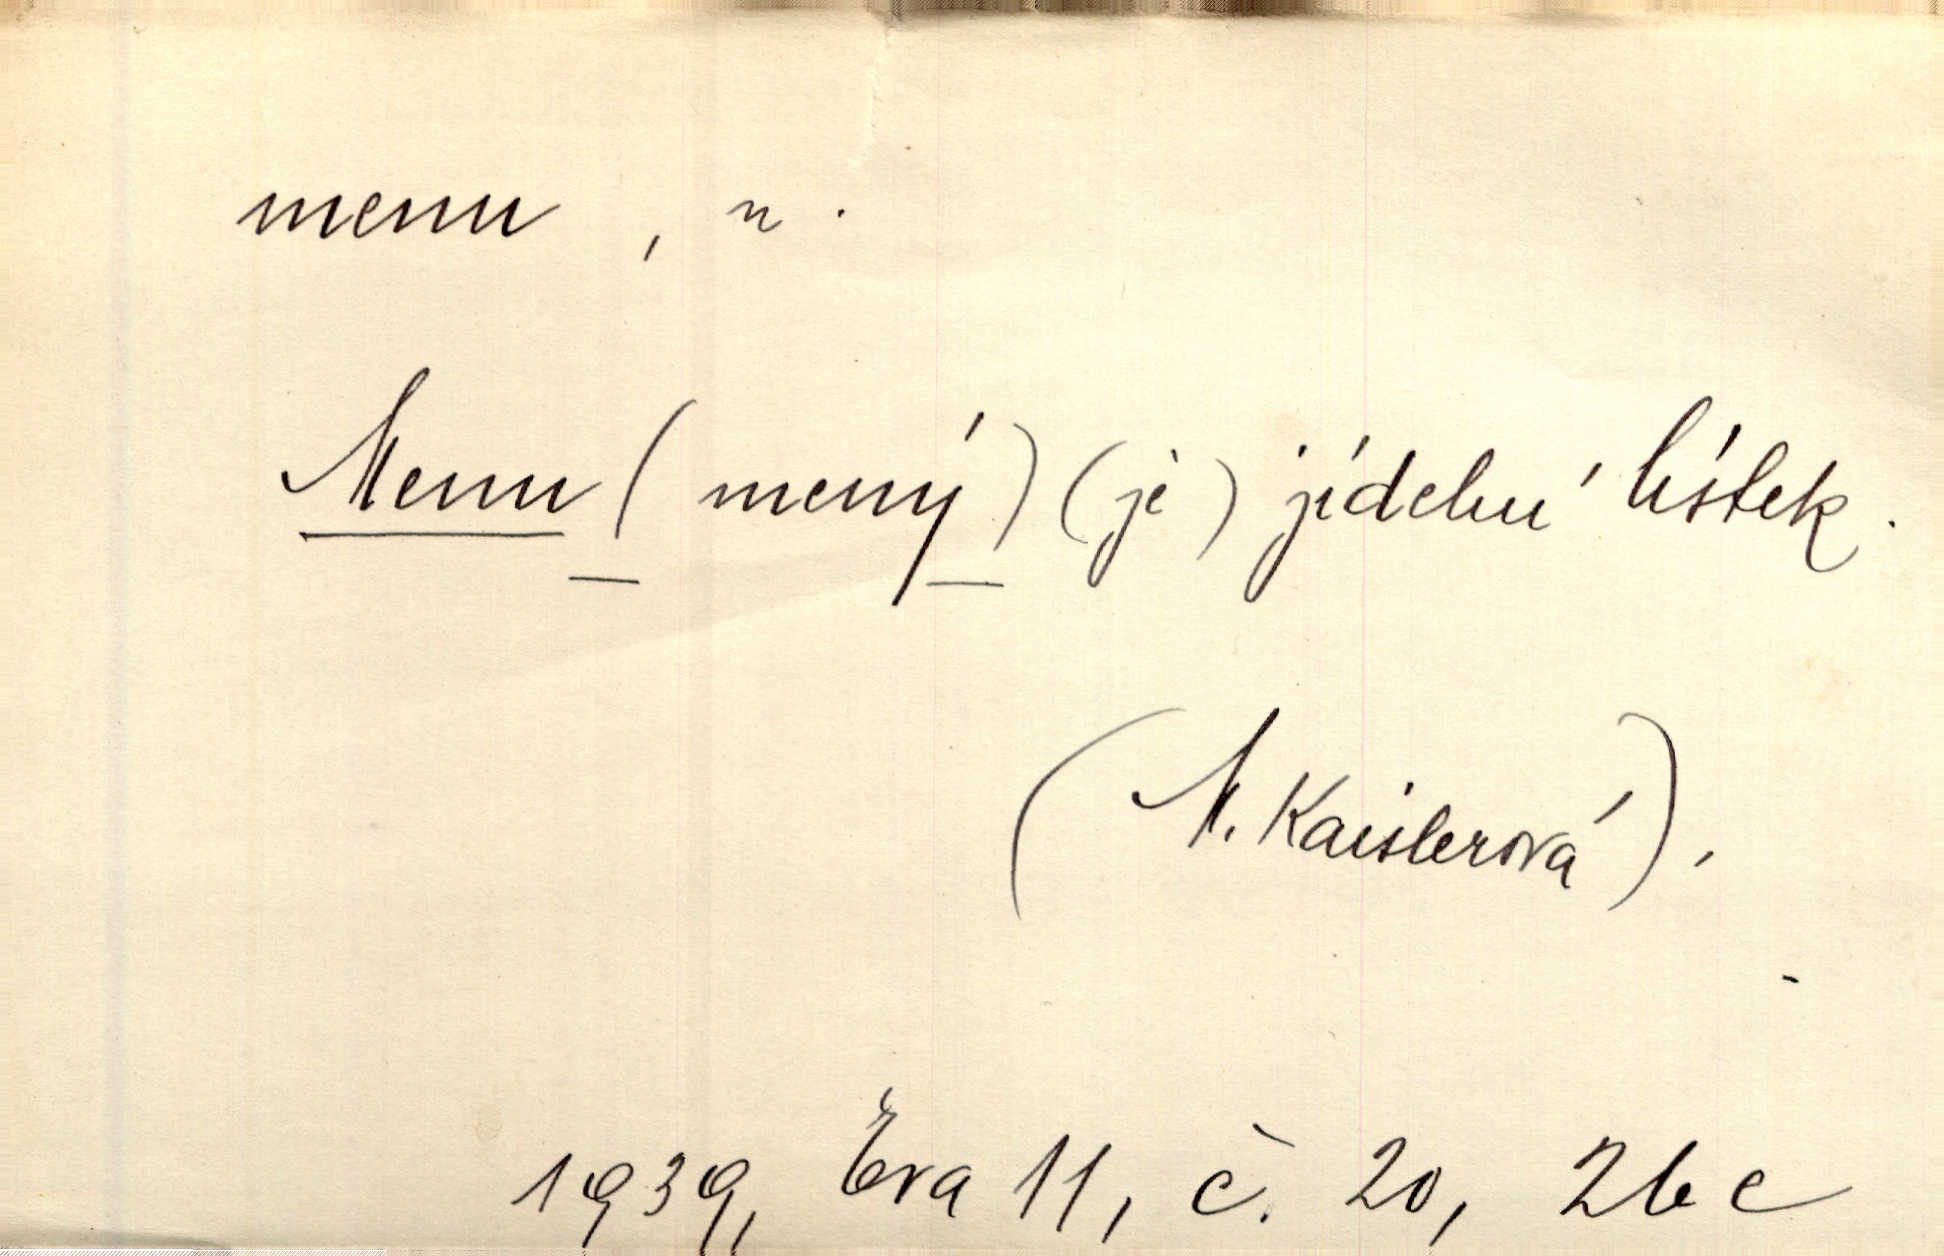 menu , n.
Menu (mený) (je) jídelní lístek.
(M. Kaislerová).
1939, Eva 11, č. 20, 26 c